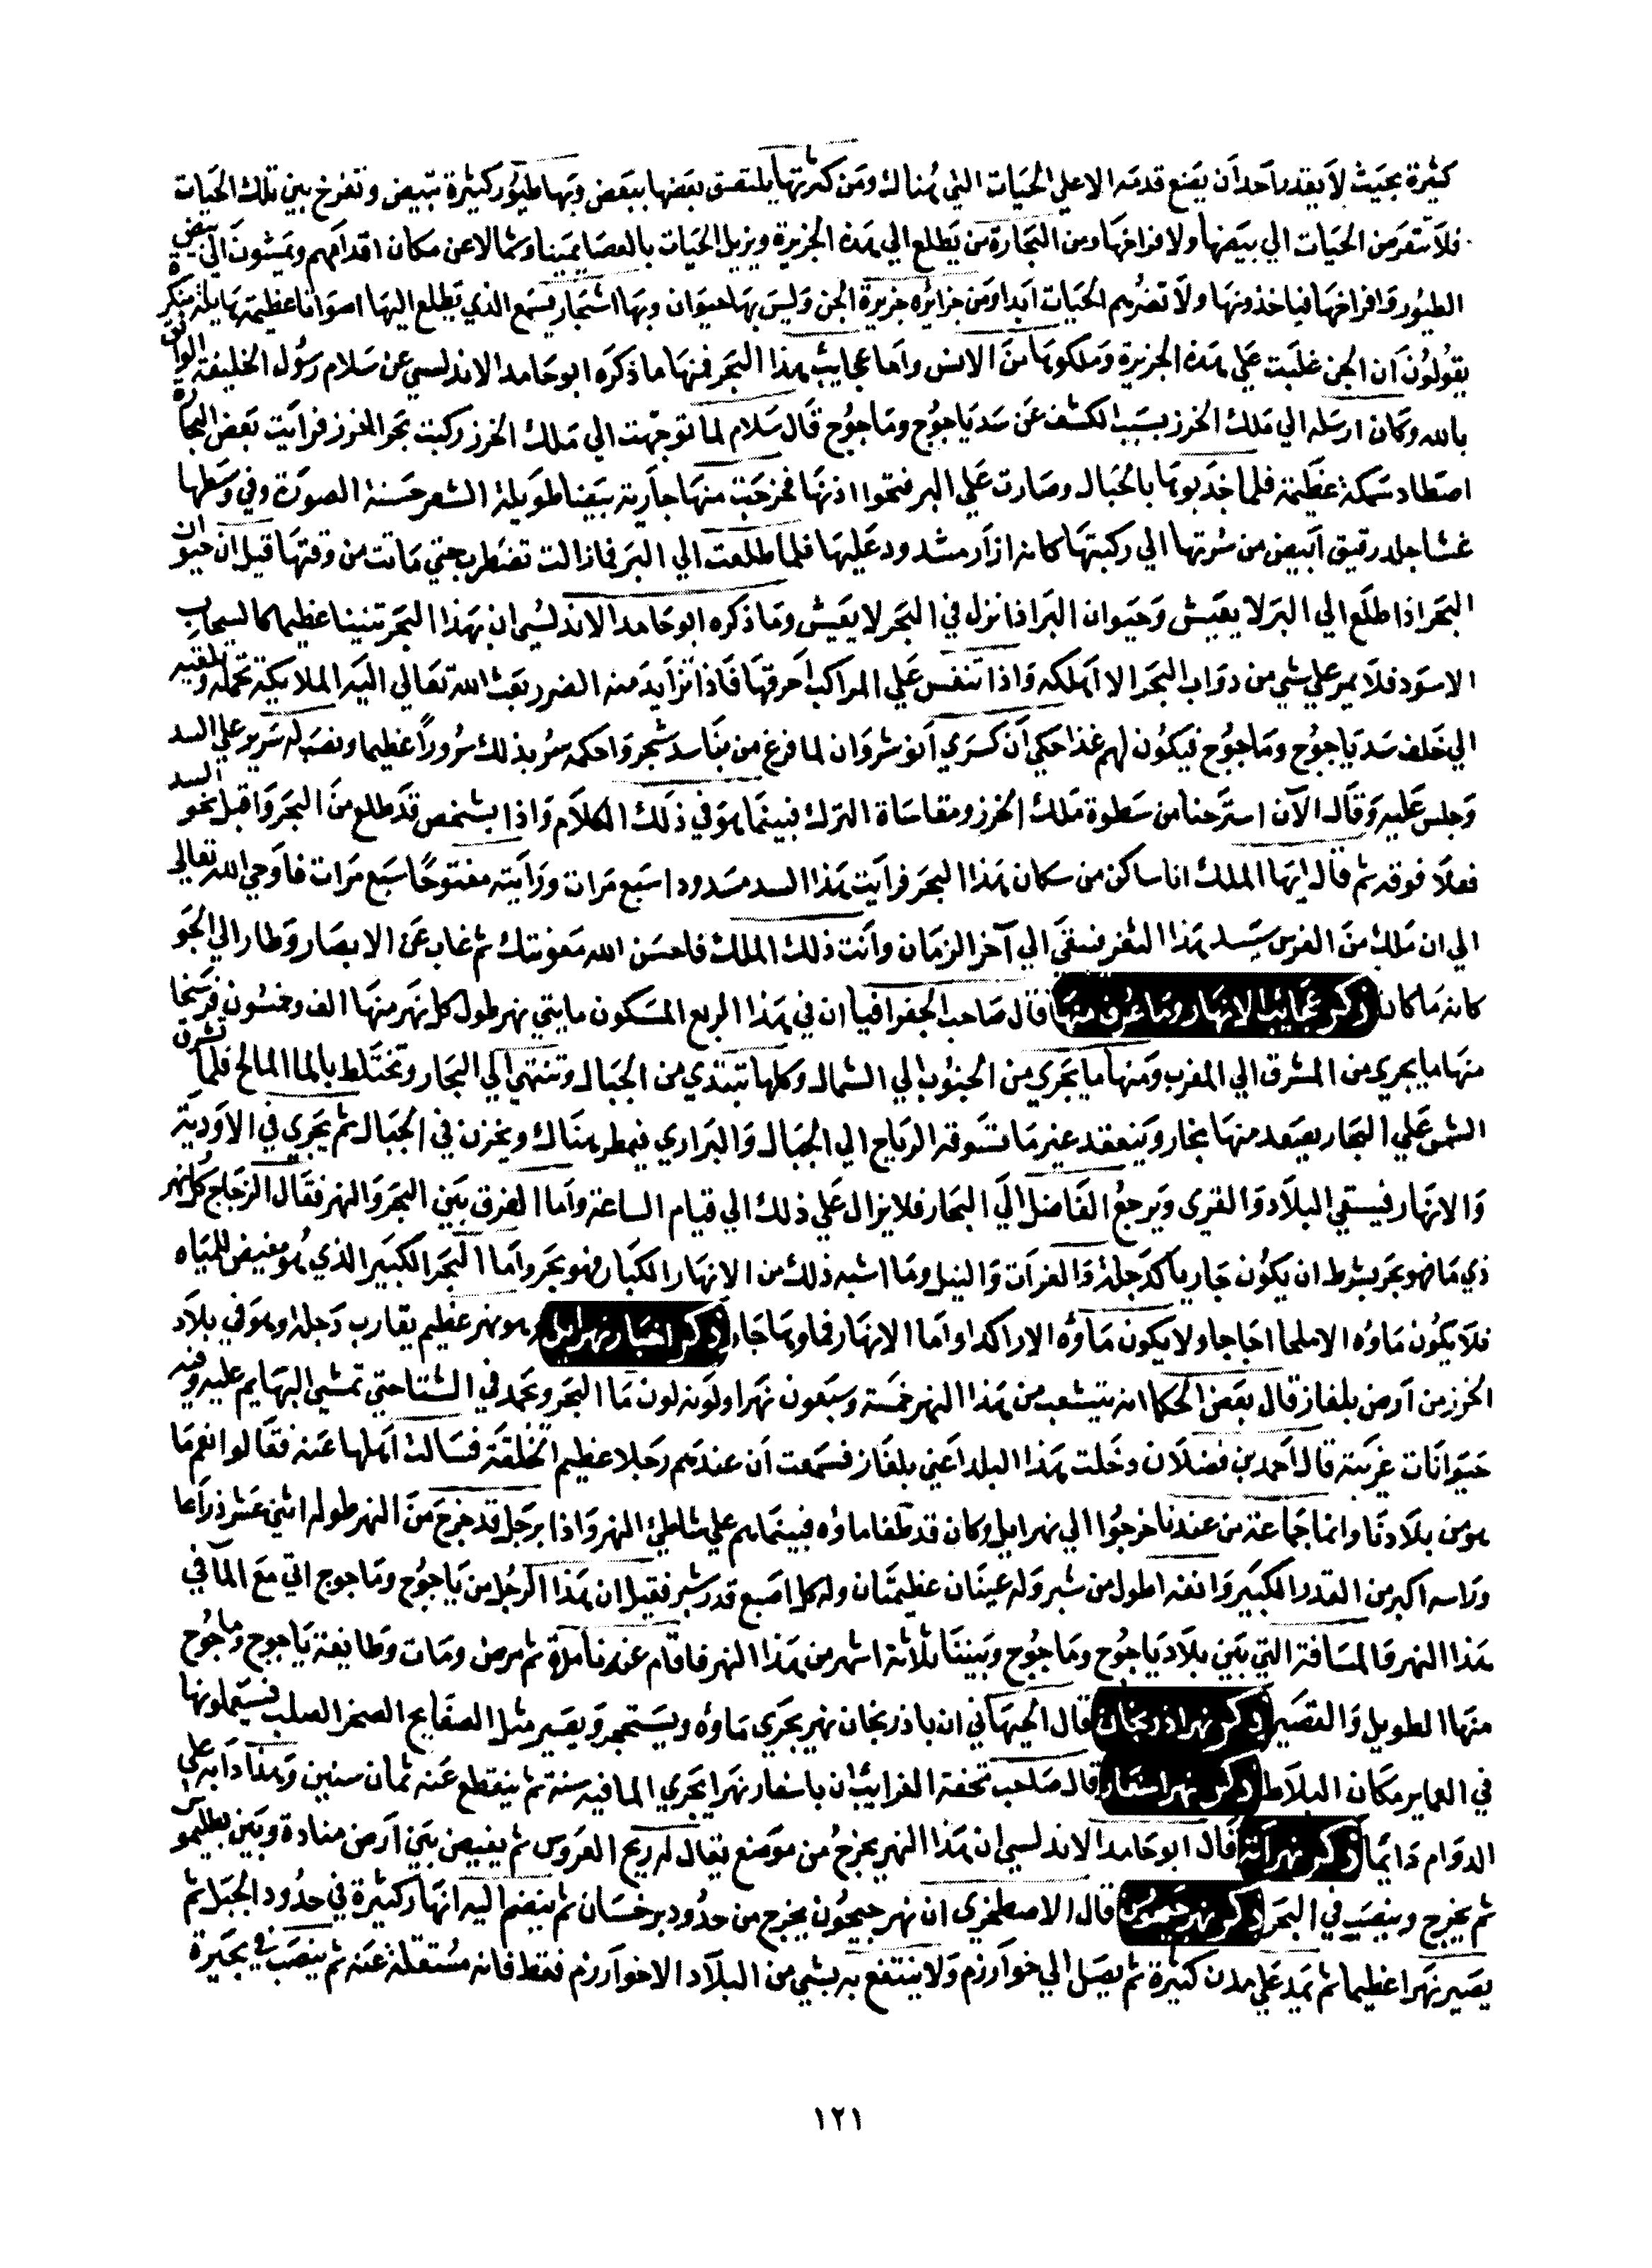 كثيرة بحيث لا يقدر احد ان يضع قدمه الا علي الحيات التي هناك ومن كثرتها يلتصق بعضها ببعض وبها طيور كثيرة تبيض وتفرخ بين تلك الحيات
فلا تتعرض الحيات الي بيضها ولا فراخها ومن التجارة من يطلع الي هذه الجزيرة ويزيل الحيات بالعصا يمينا وشمالا عن مكان اقدامهم ويمشون الي بيض
الطيور وافراخها فياخذونها ولا تضرهم الحيات ابدا ومن جزائره جزيرة الجن وليس بها حيوان وبها اشجار يسمع الذي يطلع اليها اصواتا عظيمة هايلة منكرة
يقولون ان الجن غلبت علي هذه الجزيرة وملكوها من الانس واما عجايب هذا البحر فمنها ما ذكره ابو حامد الاندلسي عن سلام رسول الخليفة الواثق
بالله وكان ارسله الي ملك الخرز بسبب الكشف عن سد ياجوج وماجوج قال سلام لما توجهت الي ملك الخرز ركبت بحر الخرز فرايت بعض التجارة
اصطاد سمكة عظيمة فلما جذبوها بالحبال وصارت علي البر فتحوا اذنها فخرجت منها جارية بيضا طويلة الشعر حسنة الصورة وفي وسطها
غشا جلد رقيق ابيض من سرتها الي ركبتها كانه ازار مشدود عليها فلما طلعت الي البر فما زالت تضطرب حتي ماتت من وقتها قيل ان حيوان
البحر اذا طلع الي البر لا يعيش وحيوان البر اذا نزل في البحر لا يعيش وما ذكره ابو حامد الاندلسي ان بهذا البحر تنينا عظيما كالسحاب
الاسود فلا يمر علي شي من دواب البحر الا اهلكه واذا تنفس علي المراكب احرقها فاذا تزايد منه الضرر بعث الله تعالي اليه الملايكة تحمله وتلقيه
الي خلف سد ياجوج وماجوج فيكون لهم غذا حكي ان كسري انوشروان لما فرغ من بنا سد شجر واحكمه سر بذلك سرورا عظيما ونصب له سرير علي السد
وجلس عليه وقال الآن استرحنا من سطوة ملك الخرز ومقاساة الترك فبينما هو في ذلك الكلام واذا بشخص قد طلع من البحر واقبل نحو السد
فعلا فوقه ثم قال ايها الملك انا ساكن من سكان هذا البحر فرايت هذا السد مسدودا سبع مرات ورايته مفتوحا سبع مرات فاوحي الله تعالي
الي ان ملك من الفرس سيسد هذا الثغر فيبقي الي آخر الزمان وانت ذلك الملك فاحسن الله معونتك ثم غاب عن الابصار وطار الي الجو
كانه ما كان ذكر عجايب الانهار وما عرف منها قال صاحب الجغرافيا ان في هذا الربع المسكون مايتي نهر طول كل نهر منها الف وخمسون فرسخا
منها ما يجري من المشرق الي المغرب ومنها ما يجري من الجنوب الي الشمال وكلها تبتدي من الجبال وتنتهي الي البحار وتختلط بالما المالح فلما تشرق
الشمس علي البحار يصعد منها بخار وينعقد غير ما تسوقه الرياح الي الجبال والبراري فيمطر هناك ويخزن في الجبال ثم يجري في الاودية
والانهار فيسقي البلاد والقري ويرجع الفاضل الي البحار فلا يزال علي ذلك الي قيام الساعة واما الفرق بين البحر والنهر فقال الزجاج كل نهر
ذي ما فهو بحر بشرط ان يكون جاريا كدجلة والفرات والنيل وما اشبه ذلك من الانهار الكبار فهو بحر واما البحر الكبير الذي هو مغيض للمياه
فلا يكون ماؤه الا ملحا اجاجا ولا يكون ماؤه الا راكدا واما الانهار فماوها جار ذكر اخبار نهر ايل وهو نهر عظيم يقارب دجلة وهو في بلاد
الخرز من ارض بلغار قال بعض الحكما انه يتشعب من هذا النهر خمسة وسبعون نهرا ولونه لون ما البحر ويجمد في الشتا حتي تمشي البهايم عليه وفيه
حيوانات غريبة قال احمد بن فضلان دخلت هذا البلد اعني بلغار فسمعت ان عندهم رجلا عظيم الخلقة فسالت اهلها عنه فقالوا نعم ما
هو من بلادنا وانما جماعة من عندنا خرجوا الي نهر ايل وكان قد طفا ماؤه فبينما هم علي شاطئ النهر واذا برجل قد خرج من النهر طوله اثني عشر ذراعا
وراسه اكبر من القدر الكبير وانفه اطول من شبر وله عينان عظيمتان وله كل اصبع قدر شبر فقيل ان هذا الرجل من ياجوج وماجوج اتي مع المآ في
هذا النهر والمسافة التي بين بلاد ياجوج وماجوج وبيننا ثلاثة اشهر من هذا النهر فاقام عندنا مدة ثم مرض ومات وطايفة ياجوج وماجوج
منها الطويل والقصير ذكر نهر اذربيجان قال الجيهاني ان باذربيجان نهر يجري ماؤه ويستحجر ويصير مثل الصفايح الصخر الصلب فيستعملونها
في العماير مكان البلاط ذكر نهر اسفار قال صاحب تحفة الغرايب ان باسفار نهرا يجري الما فيه سنة ثم ينقطع عنه ثمان سنين وهذا دابه علي
الدوام دايما ذكر نهر انه قال ابو حامد الاندلسي ان هذا النهر يخرج من موضع يقال له ريح العروس ثم يغيض بين ارض منادة وبين بطليموس
ثم يخرج وينصب في البحر ذكر نهر جيحون قال الاصطخري ان نهر جيحون يخرج من حدود برخسان ثم ينضم اليه انهار كثيرة في حدود الجبل ثم
يصير نهرا عظيما ثم يمد علي مدن كثيرة ثم يصل الي خوارزم ولا ينتفع به بشي من البلاد الا خوارزم فقط فانه مستقلة عنه ثم ينصب في بحيرة
١٢١